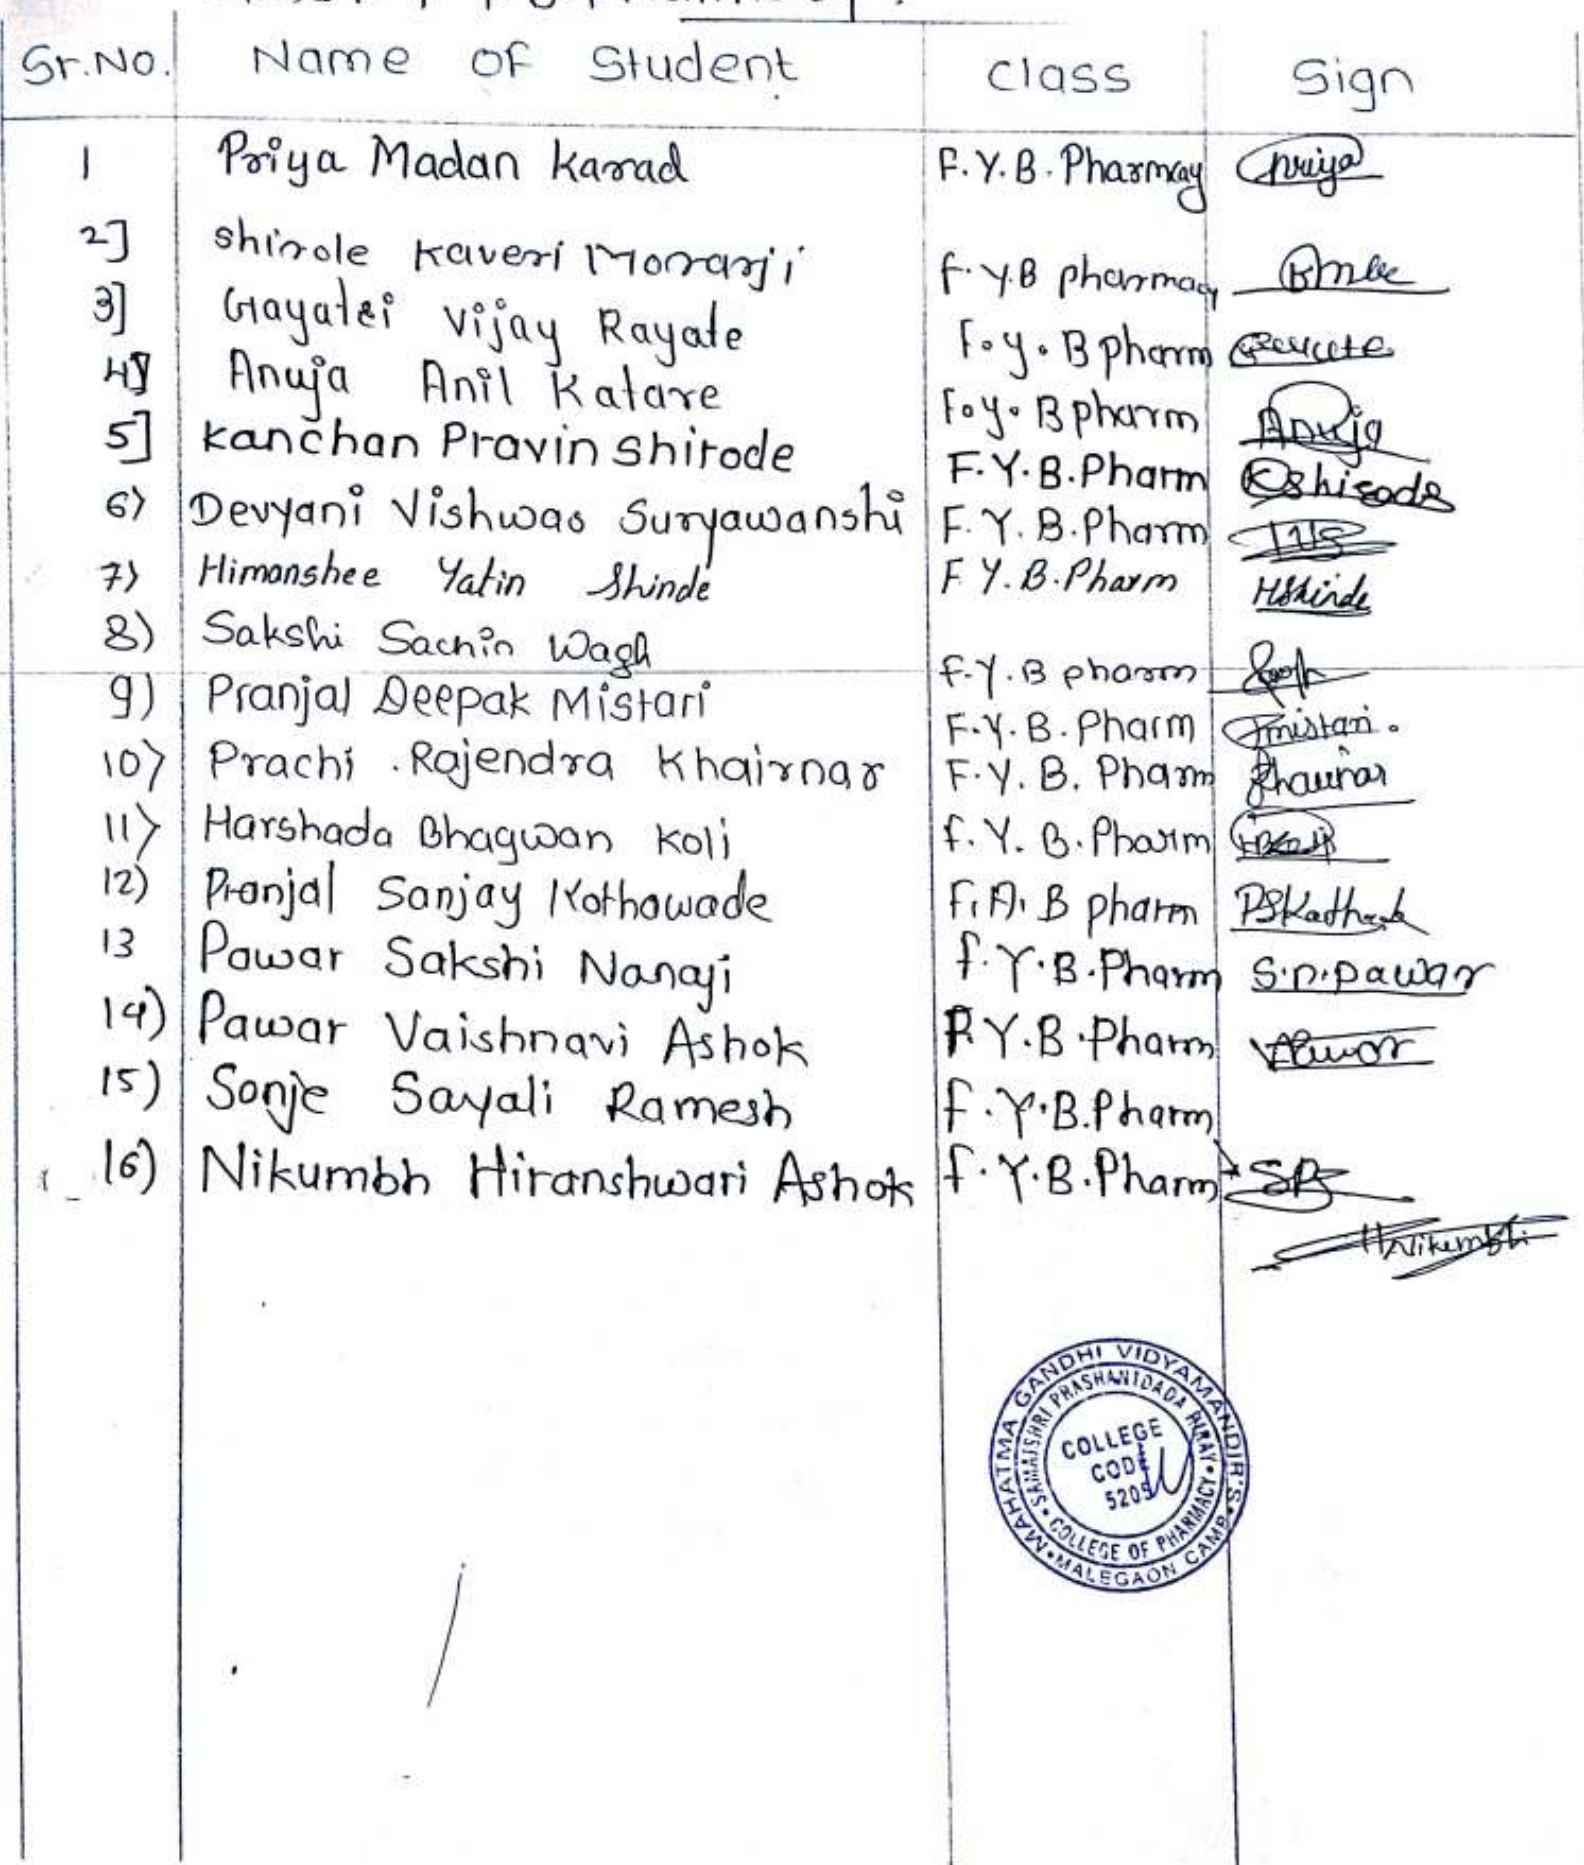 Sr.No. Name of Student Class Sign
1 Priya Madan Karad F.Y.B. Pharmcay Priya
2] Shirole Kaveri Morarji F.Y.B pharmacy
3] Gayatri Vijay Rayate F.y. B pharm
4] Anuja Anil Katare F.y. B pharm Anuja
5] Kanchan Pravin Shirode F.Y.B.Pharm KShirode
6) Devyani Vishwas Suryawanshi F.Y.B.Pharm
7) Himanshee Yatin Shinde F.Y.B.Pharm HShinde
8) Sakshi Sachin Wagh F.Y.B pharm
9) Pranjal Deepak Mistari F.Y.B. Pharm Pmistari.
10) Prachi .Rajendra Khairnar F.Y.B. Pharm Pkhairnar
11) Harshada Bhagwan Koli F.Y. B.Pharm
12) Pranjal Sanjay Kothawade F.A. B pharm
13 Pawar Sakshi Nanaji F.Y.B.Pharm S.n.pawar
14) Pawar Vaishnavi Ashok F.Y.B.Pharm VPawar
15) Sonje Sayali Ramesh F.Y.B.Pharm
16) Nikumbh Hiranshwari Ashok F.Y.B.Pharm
HNikumbh
MAHATMA GANDHI VIDYAMANDIR'S
SAMAJSHRI PRASHANTDADA HIRAY
COLLEGE OF PHARMACY
MALEGAON CAMP
COLLEGE
CODE
5205